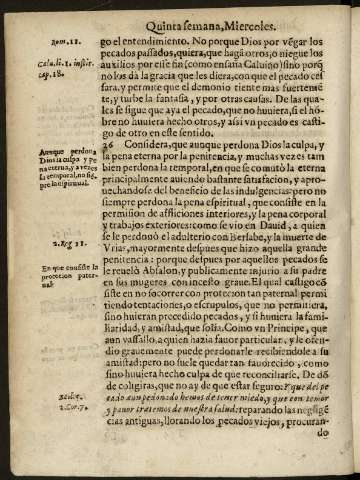 Quinta semana, Miercoles.
Rom. 11.
Calu. li. 1. instit.
cap. 18.
go el entendimiento. No porque Dios por vẽgar los
pecados passados, quiera, que hagã otros, o niegue los
auxilios por este fin (como enseña Caluino) sino porq̃
no los dà la gracia que les diera, con que el pecado ces
sara, y permite que el demonio tiente mas fuertemẽ
te, y turbe la fantasia, y por otras causas. De las qua-
les se sigue que aya el pecado, que no huuiera, si el hõ-
bre no huuiera hecho otros, y assi vn pecado es casti-
go de otro en este sentido.
Aunque perdona
Dios la culpa y pe
na eterna, y a vezes
la temporal, no siẽ-
pre la espiritual.
26 Considera, que aunque perdona Dios la culpa, y
la pena eterna por la penitencia, y muchas vezes tam
bien perdona la temporal, en que se comutò la eterna
principalmente auiendo bastante satisfacion, y apro-
uechandose del beneficio de las indulgencias: pero no
siempre perdona la pena espiritual, que consiste en la
permision de afflicciones interiores, y la pena corporal
y trabajos exteriores: como se vio en Dauid, a quien
se le perdonò el adulterio con Bersabe, y la muerte de
2. Reg 11.
Vrias, mayormente despues que hizo aquella grande
penitencia: porque despues por aquellos pecados se
le reuelò Absalon, y publicamente injurio a su padre
En que consiste la
proteccion pater-
nal.
en sus mugeres con incesto graue. El qual castigo cõ
siste en no socorrer con proteccion tan paternal permi
tiendo tentaciones, o escrupulos, que no permitiera,
sino huuieran precedido pecados, y si huuiera la fami-
liaridad, y amistad, que solia. Como vn Principe, que
aun vassallo, a quien hazia fauor particular, y le ofen-
dio grauemente puede perdonarle recibiendole a su
amistad: pero no suele quedar tan fauorecido, como
sino huuiera hecho culpa de que reconciliarse. De dõ
de coligiras, que no ay de que estar seguro: Y que del pe
cado aun perdonado hemos de tener miedo, y que con temor
2. Cor. 7.
y pauor tratemos de nuestra salud: reparando las negligẽ
cias antiguas, llorando los pecados viejos, procuran-
do